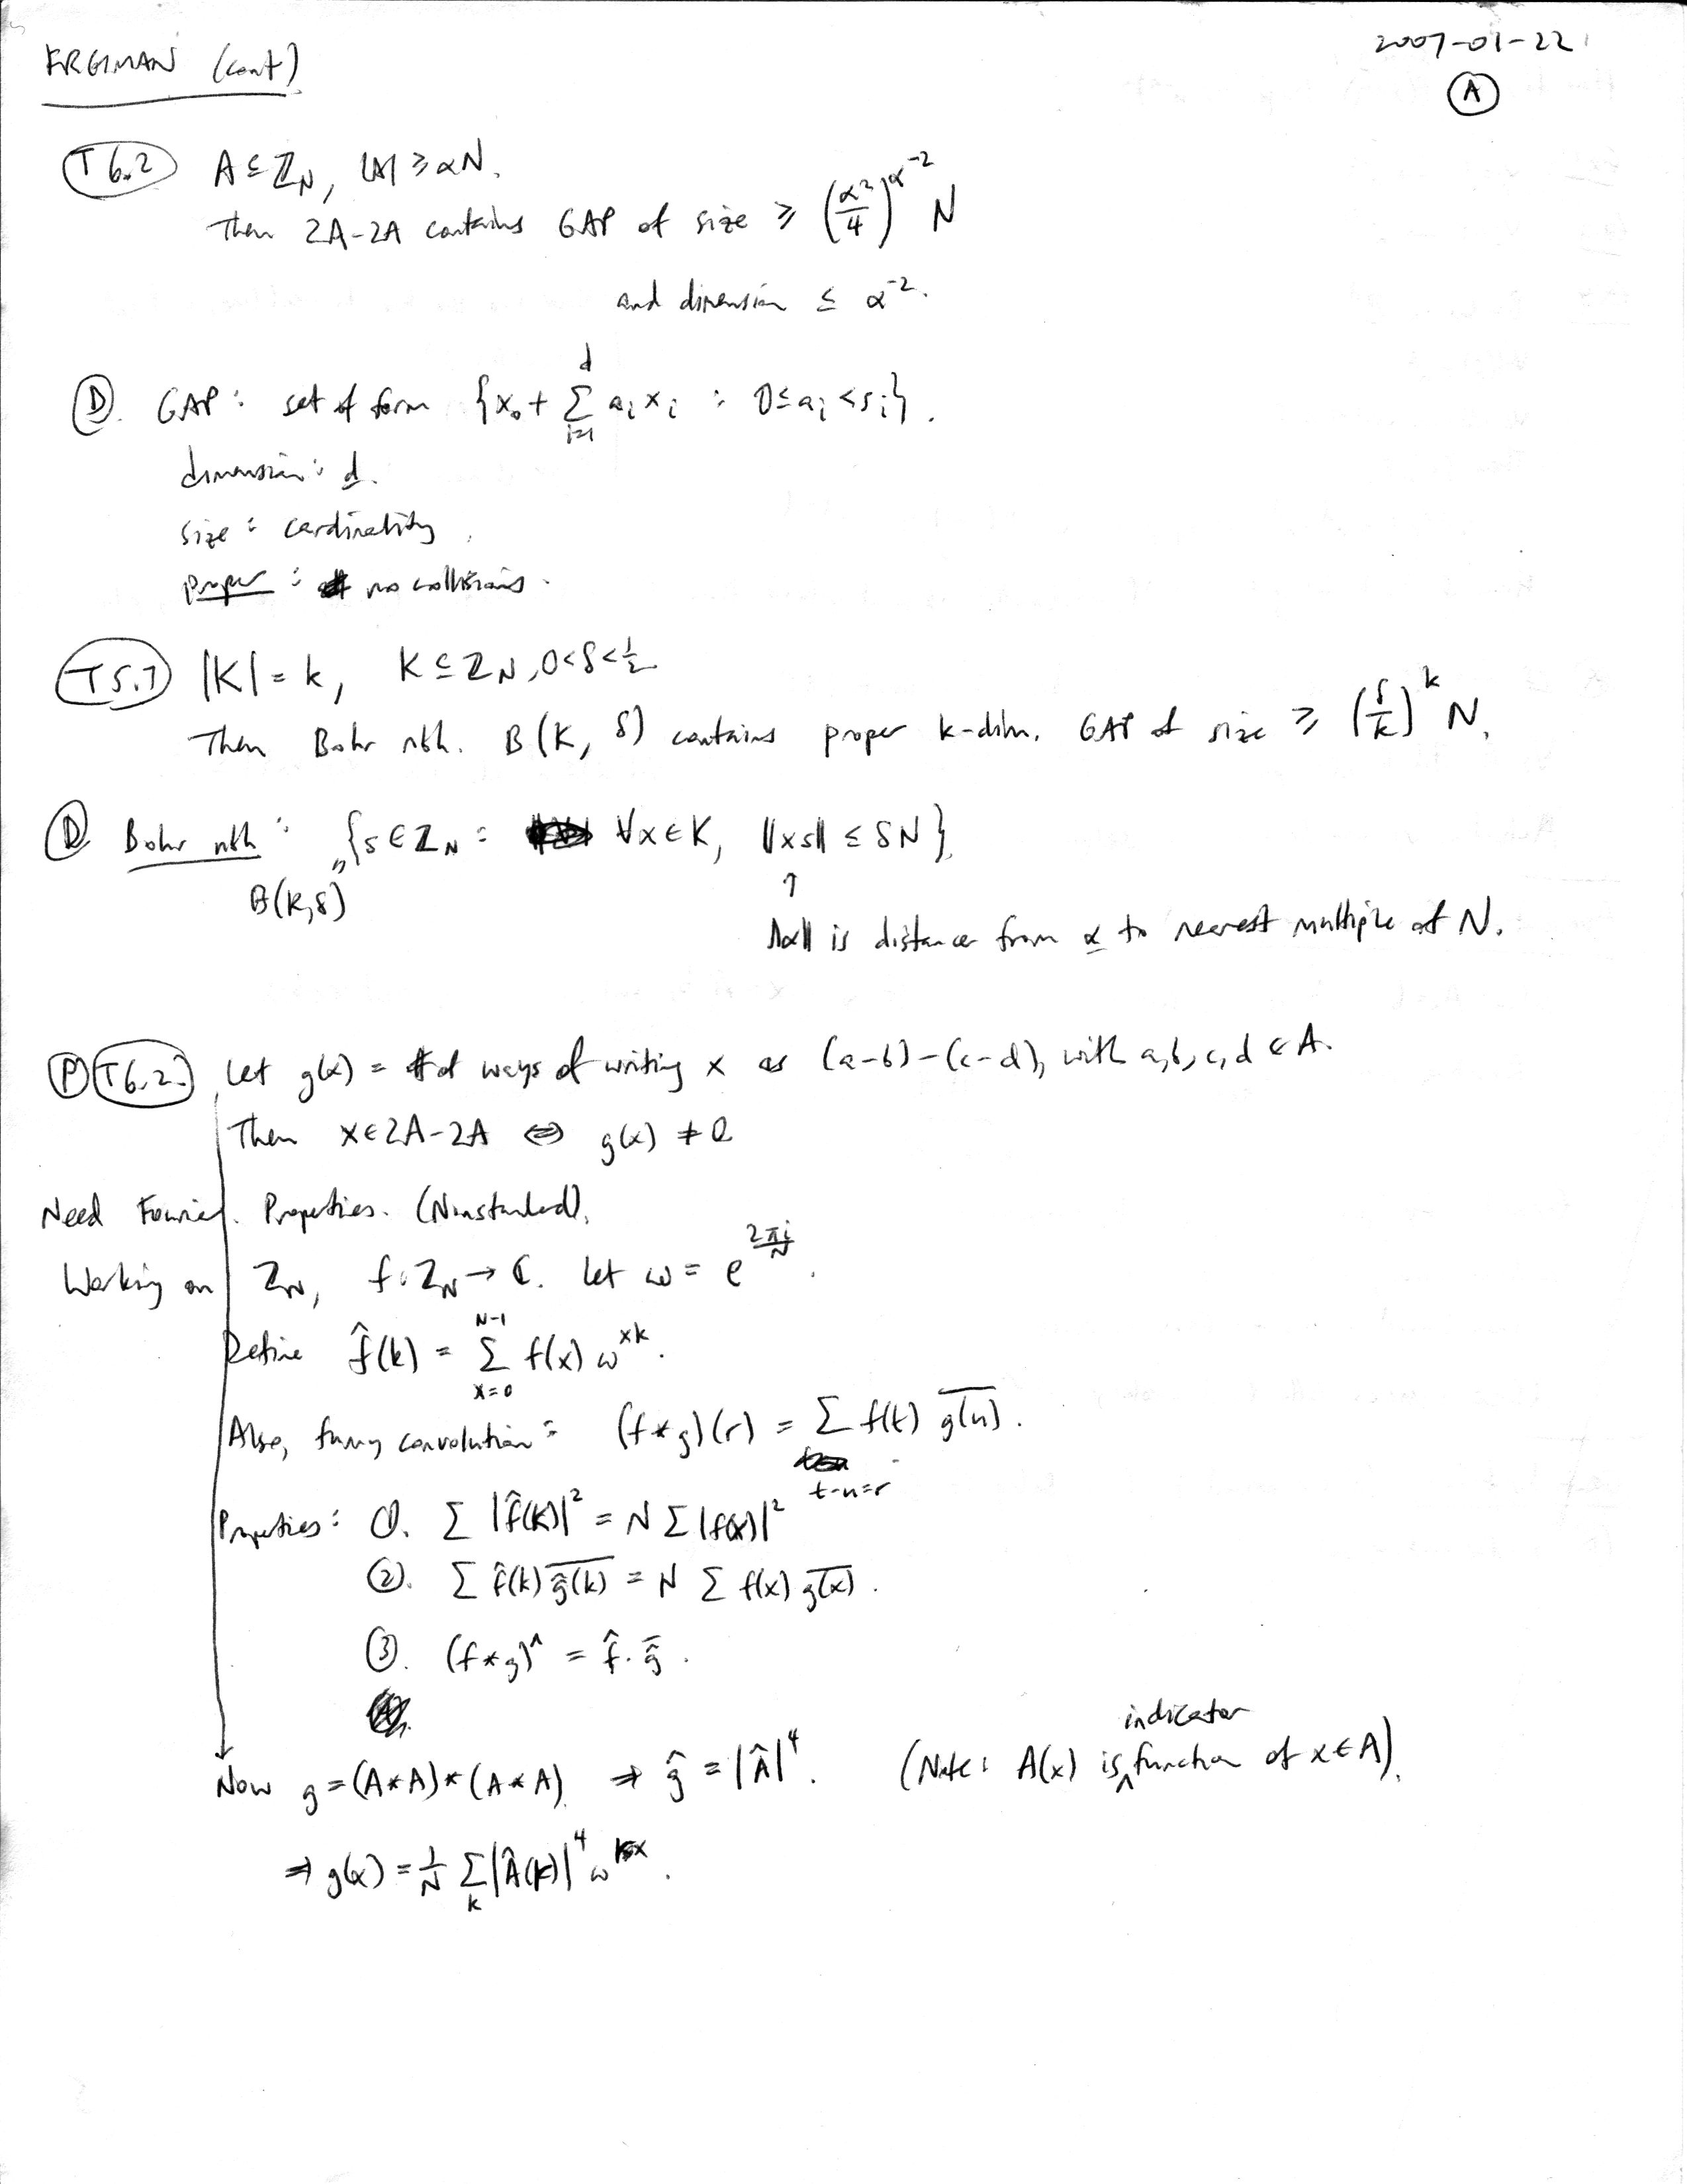 FREIMAN (cont)
2007-01-22
A
T 6.2 A ⊆ ℤ_N, |A| ≥ αN.
Then 2A-2A contains GAP of size ≥ (α²/4)^{α^{-2}} N
and dimension ≤ α^{-2}.
D. GAP: set of form {x₀ + Σ_{i=1}^{d} a_i x_i : 0 ≤ a_i < s_i}.
dimension: d.
size: cardinality.
proper: no collisions.
T 5.7 |K| = k, K ⊆ ℤ_N, 0<δ<½
Then Bohr nbh. B(K, δ) contains proper k-dim. GAP of size ≥ (δ/k)^k N.
D. Bohr nbh: {s ∈ ℤ_N : ∀x∈K, ||xs|| ≤ δN}
" B(K,δ)
↑
||α|| is distance from α to nearest multiple of N.
P T6.2. Let g(x) = # of ways of writing x as (a-b)-(c-d), with a,b,c,d ∈ A.
Then x ∈ 2A-2A ⇔ g(x) ≠ 0
Need Fourier. Properties. (Nonstandard).
Working on ℤ_N, f: ℤ_N → ℂ. Let ω = e^{2πi/N}.
Define f̂(k) = Σ_{x=0}^{N-1} f(x) ω^{xk}.
Also, funny convolution: (f*g)(r) = Σ_{t-u=r} f(t) \overline{g(u)}.
Properties: ①. Σ |f̂(k)|² = N Σ |f(x)|²
②. Σ f̂(k) \overline{ĝ(k)} = N Σ f(x) \overline{g(x)}.
③. (f*g)^ = f̂ · \overline{ĝ}.
Now g = (A*A)*(A*A). ⇒ ĝ = |Â|⁴. (Note: A(x) is indicator function of x ∈ A).
⇒ g(x) = 1/N Σ_k |Â(k)|⁴ ω^{kx}.